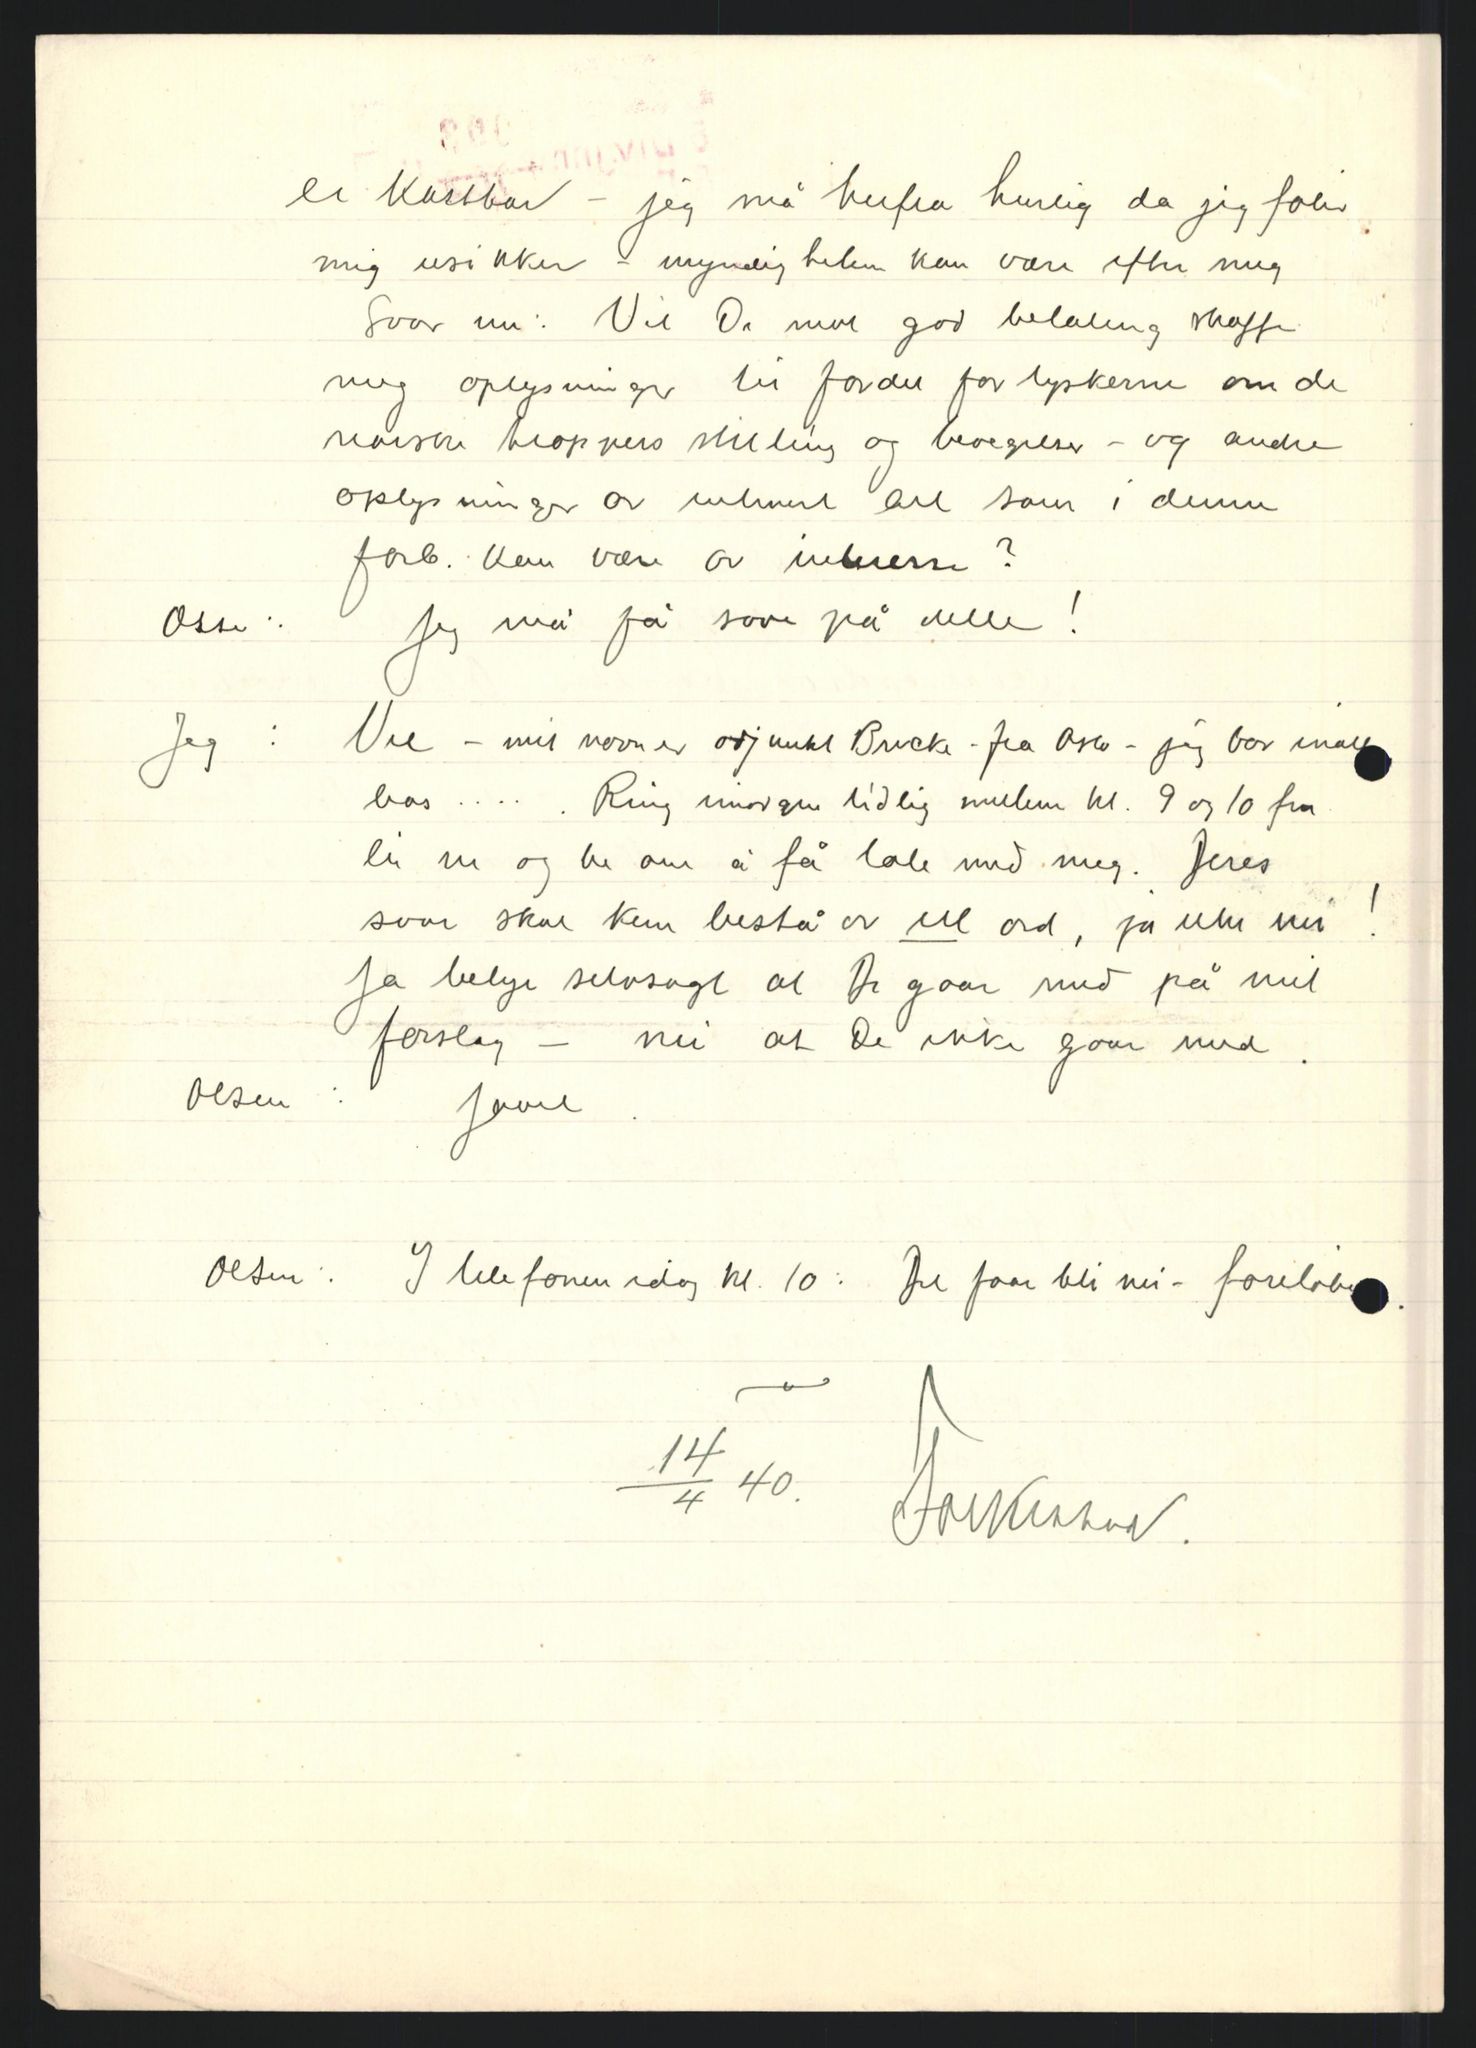 er kostbar – jeg må herfra hurtig da jeg føler
mig usikker – myndigheten kan være efter meg
Svar nu: Vil De mot god betaling skaffe
meg oplysninger til fordel for tyskerne om de
norske troppers stilling og bevegelser – og andre
oplysninger av internt art som i denne
forb. kan være av interesse?
Olsen: Jeg må få sove på dette!
Jeg : Vel – mit navn er adjunkt Brocke - fra Oslo – jeg bor inatt
hos ..... Ring imorgen tidlig mellem kl. 9 og 10 fra
og be om å få tale med meg. Deres
svar skal kun bestå av ett ord, ja eller nei!
Ja betyr selvsagt at De gaar med på mit
forslag – nei at De ikke gaar med.
Olsen : Javel.
Olsen: I telefonen idag kl. 10: Det faar bli nei - foreløbig.
14/4 40.